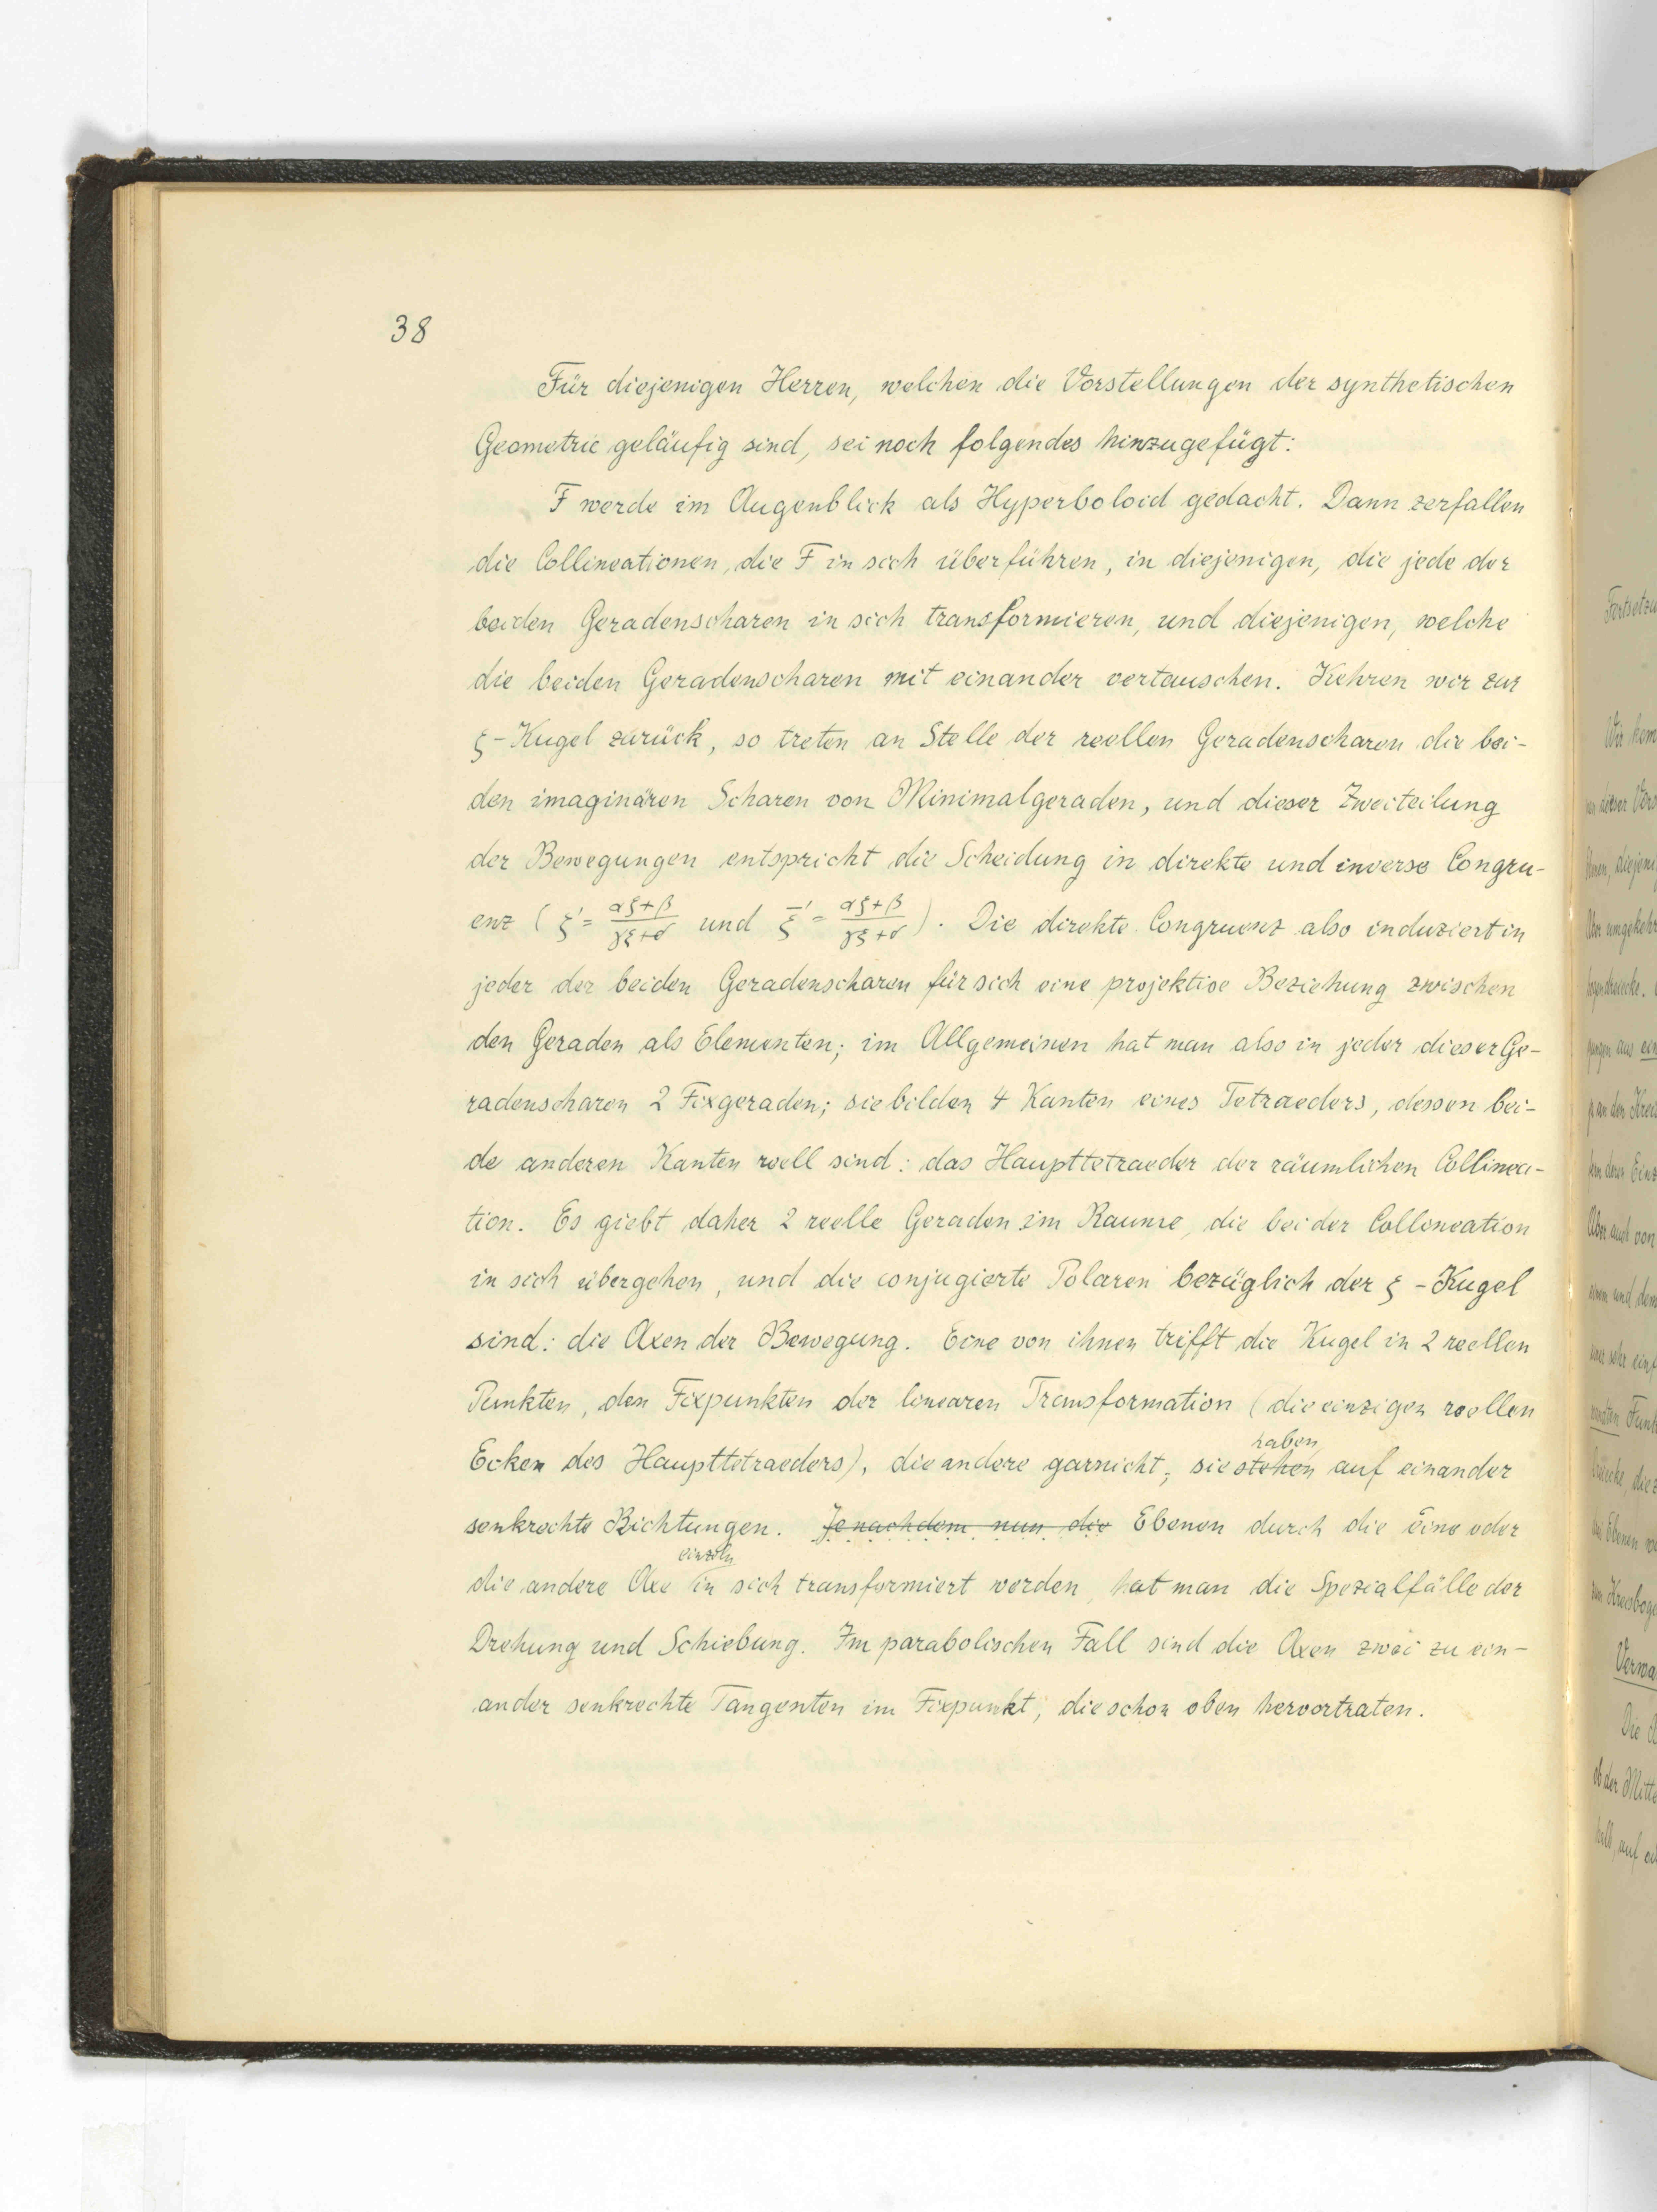 38
Für diejenigen Herren, welchen die Vorstellungen der synthetischen
Geometrie geläufig sind, sei noch folgendes hinzugefügt:
F werde im Augenblick als Hyperboloid gedacht. Dann zerfallen
die Collineationen, die F in sich überführen, in diejenigen, die jede der
beiden Geradenscharen in sich transformieren, und diejenigen, welche
die beiden Geradenscharen mit einander vertauschen. Kehren wir zur
ξ-Kugel zurück, so treten an Stelle der reellen Geradenscharen die bei-
den imaginären Scharen von Minimalgeraden, und dieser Zweiteilung
der Bewegungen entspricht die Scheidung in direkte und inverse Congru-
enz (ξ' = (αξ+β)/(γξ+δ) und ξ̄' = (αξ+β)/(γξ+δ)). Die direkte Congruenz also induziert in
jeder der beiden Geradenscharen für sich eine projektive Beziehung zwischen
den Geraden als Elementen; im Allgemeinen hat man also in jeder dieser Ge-
radenscharen 2 Fixgeraden; sie bilden 4 Kanten eines Tetraeders, dessen bei-
de anderen Kanten reell sind: das Haupttetraeder der räumlichen Collinea-
tion. Es giebt daher 2 reelle Geraden im Raume, die bei der Collineation
in sich übergehen, und die conjugierte Polaren bezüglich der ξ-Kugel
sind: die Axen der Bewegung. Eine von ihnen trifft die Kugel in 2 reellen
Punkten, den Fixpunkten der linearen Transformation (die einzigen reellen
Ecken des Haupttetraeders), die andere garnicht; sie stehen haben auf einander
senkrechte Richtungen. Jenachdem nun die Ebenen durch die eine oder
die andere Axe einzeln in sich transformiert werden, hat man die Spezialfälle der
Drehung und Schiebung. Im parabolischen Fall sind die Axen zwei zu ein-
ander senkrechte Tangenten im Fixpunkt, die schon oben hervortraten.